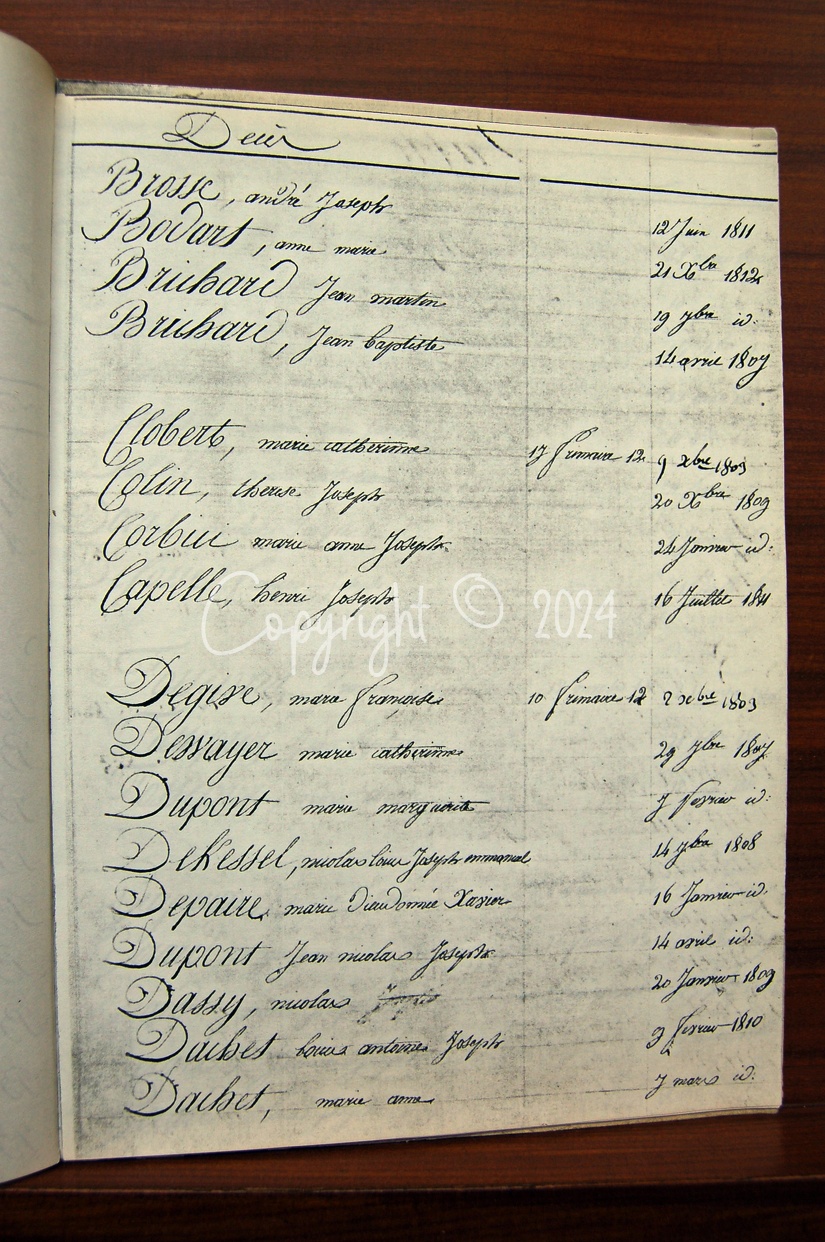 Decès
Brosse, andré Joseph 12 Juin 1811
Bodart, anne marie 21 Xbre 1812
Brichard Jean martin 19 7bre id:
Brichard, Jean baptiste 14 avril 1807
Clobert, marie catherinne 17 frimaire 12 9 xbre 1803
Colin, therese Joseph 20 Xbre 1809
Corbici marie anne Joseph 24 Janvier id:
Capelle, henri Joseph 16 Juillet 1811
Copyright © 2024
Degive, marie françoise 10 frimaire 12 2 xbre 1803
Dessayer marie catherinne 29 7bre 1807
Dupont marie marguerite 7 fevrier id:
DeKessel, nicolas louis Joseph emmanuel 14 7bre 1808
Depaire, marie dieudonnée Xavier 16 Janvier id.
Dupont Jean nicolas Joseph 14 avril id:
Dassy, nicolas 20 Janvier 1809
Dachet louis antoine Joseph 9 fevrier 1810
Dachet, marie anne 7 mars id: